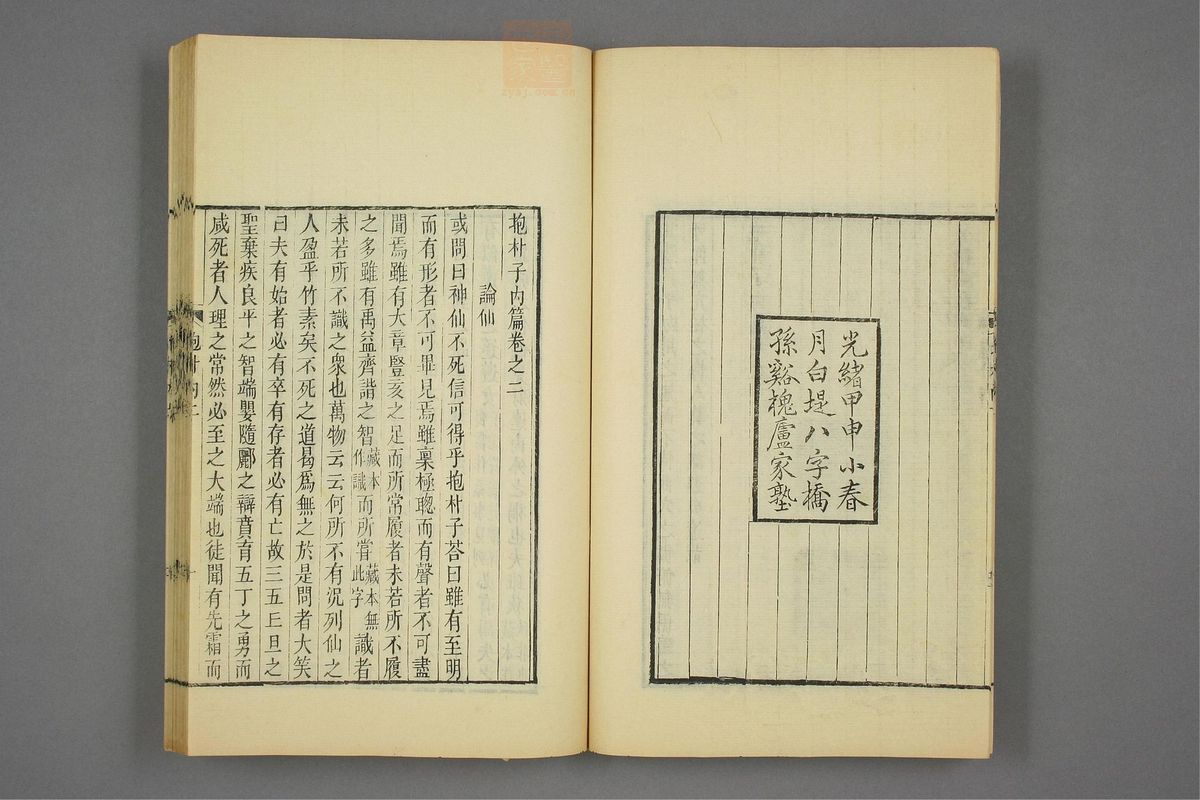 光緒甲申小春
月白堤八字橋
孫谿槐廬家塾
抱朴子內篇卷之二
論仙
或問曰神仙不死信可得乎抱朴子荅曰雖有至明
而有形者不可畢見焉雖稟極聰而有聲者不可盡
聞焉雖有大章豎亥之足而所常履者未若所不履
之多雖有禹益齊諧之智藏本作識而所嘗藏本無此字識者
未若所不識之衆也萬物云云何所不有況列仙之
人盈乎竹素矣不死之道曷爲無之於是問者大笑
曰夫有始者必有卒有存者必有亡故三五丘旦之
聖棄疾良平之智端嬰隨酈之辯賁育五丁之勇而
咸死者人理之常然必至之大端也徒聞有先霜而
抱朴內二
zysj.com.cn